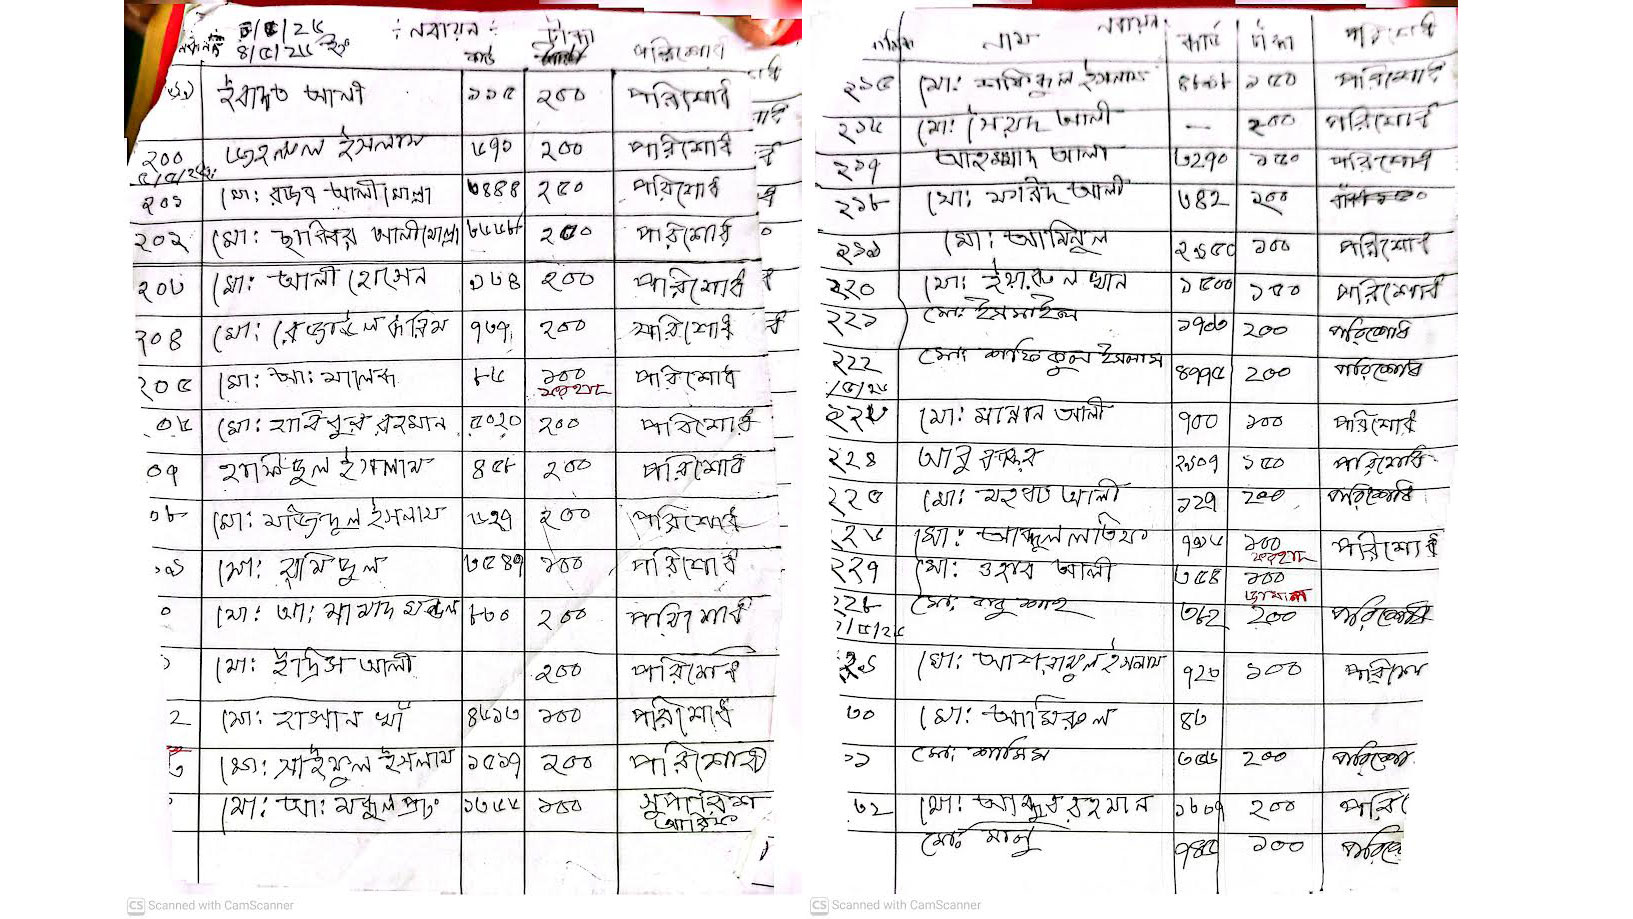 ৪/৫/২৫ ইং
নবায়ন
কার্ড
টাকা
পরিশোধ
ইবাদত আলী ১১৫ ২০০ পরিশোধ
২০০ ইসলাম ৬৭০ ২০০ পরিশোধ
২০১ মো: রজব আলী মোল্লা ৩৪৪৪ ২৫০ পরিশোধ
২০২ মো: ছাব্বির আলী মোল্লা ২০০ পরিশোধ
২০৩ মো: আলী হোসেন ১৬৪ ২০০ পরিশোধ
২০৪ মো: রেজাউল করিম ৭৬৭ ২০০ পরিশোধ
২০৫ মো: আ: মালেক ৮৬ ১০০ পরিশোধ
০৬ মো: হাবিবুর রহমান ৫০২০ ২০০ পরিশোধ
০৭ হাফিজুল ইসলাম ৪৫৮ ২০০ পরিশোধ
০৮ মো: মজিদুল ইসলাম ৬২৭ ২০০ পরিশোধ
মো: হামিদুল ৩৫৪৭ ১০০ পরিশোধ
০ মো: আ: সামাদ মন্ডল ৮৬০ ২০০ পরিশোধ
মো: ইদ্রিস আলী ২০০ পরিশোধ
২ মো: হাসান খাঁ ৪৬১৩ ১০০ পরিশোধ
৩ মো: সাইফুল ইসলাম ১৫১৭ ২০০ পরিশোধ
মো: আ: ১৩৬৬ ১০০ সুপারিশ
আরিফ
নবায়ন
নাম কার্ড টাকা পরিশোধ
২১৫ মো: শফিকুল ইসলাম ১৫০ পরিশোধ
২১৬ মো: সৈয়দ আলী — ২০০ পরিশোধ
২১৭ আহম্মাদ আলী ৩২৭০ ১৫০ পরিশোধ
২১৮ মো: আলী ৩৪২ ২০০
২১৯ মো: আমিনুল ২১৫০ ১০০ পরিশোধ
২২০ মো: খান ১৫০০ ১৫০ পরিশোধ
২২১ মো: ইসমাইল ১৭০৩ ২০০ পরিশোধ
২২২ মো: শফিকুল ইসলাম ৪৭৭৫ ২০০ পরিশোধ
/৫/২৫
২২৩ মো: মান্নান আলী ৭০০ ১০০ পরিশোধ
২২৪ আবু বক্কর ২১০৭ ১৫০ পরিশোধ
২২৫ মো: মহব্বত আলী ১২৭ ২০০ পরিশোধ
২২৬ মো: আব্দুল লতিফ ৭১৬ ১০০ পরিশোধ
২২৭ মো: ওহাব আলী ৩৫৪ ১০০
২২৮ মো: বাবু শাহ ৩৬২ ২০০ পরিশোধ
২২৯ মো: আশরাফুল ইসলাম ৭২৩ ১০০ পরিশোধ
৩০ মো: আমিরুল ৪৩
৩১ মো: শামিম ৩৫৬ ২০০ পরিশোধ
৩২ মো: আব্দুর রহমান ১৮০৭ ২০০ পরি
মো: মানু ৭৪৫ ১০০ পরিশো
CS Scanned with CamScanner
CS Scanned with CamScanner